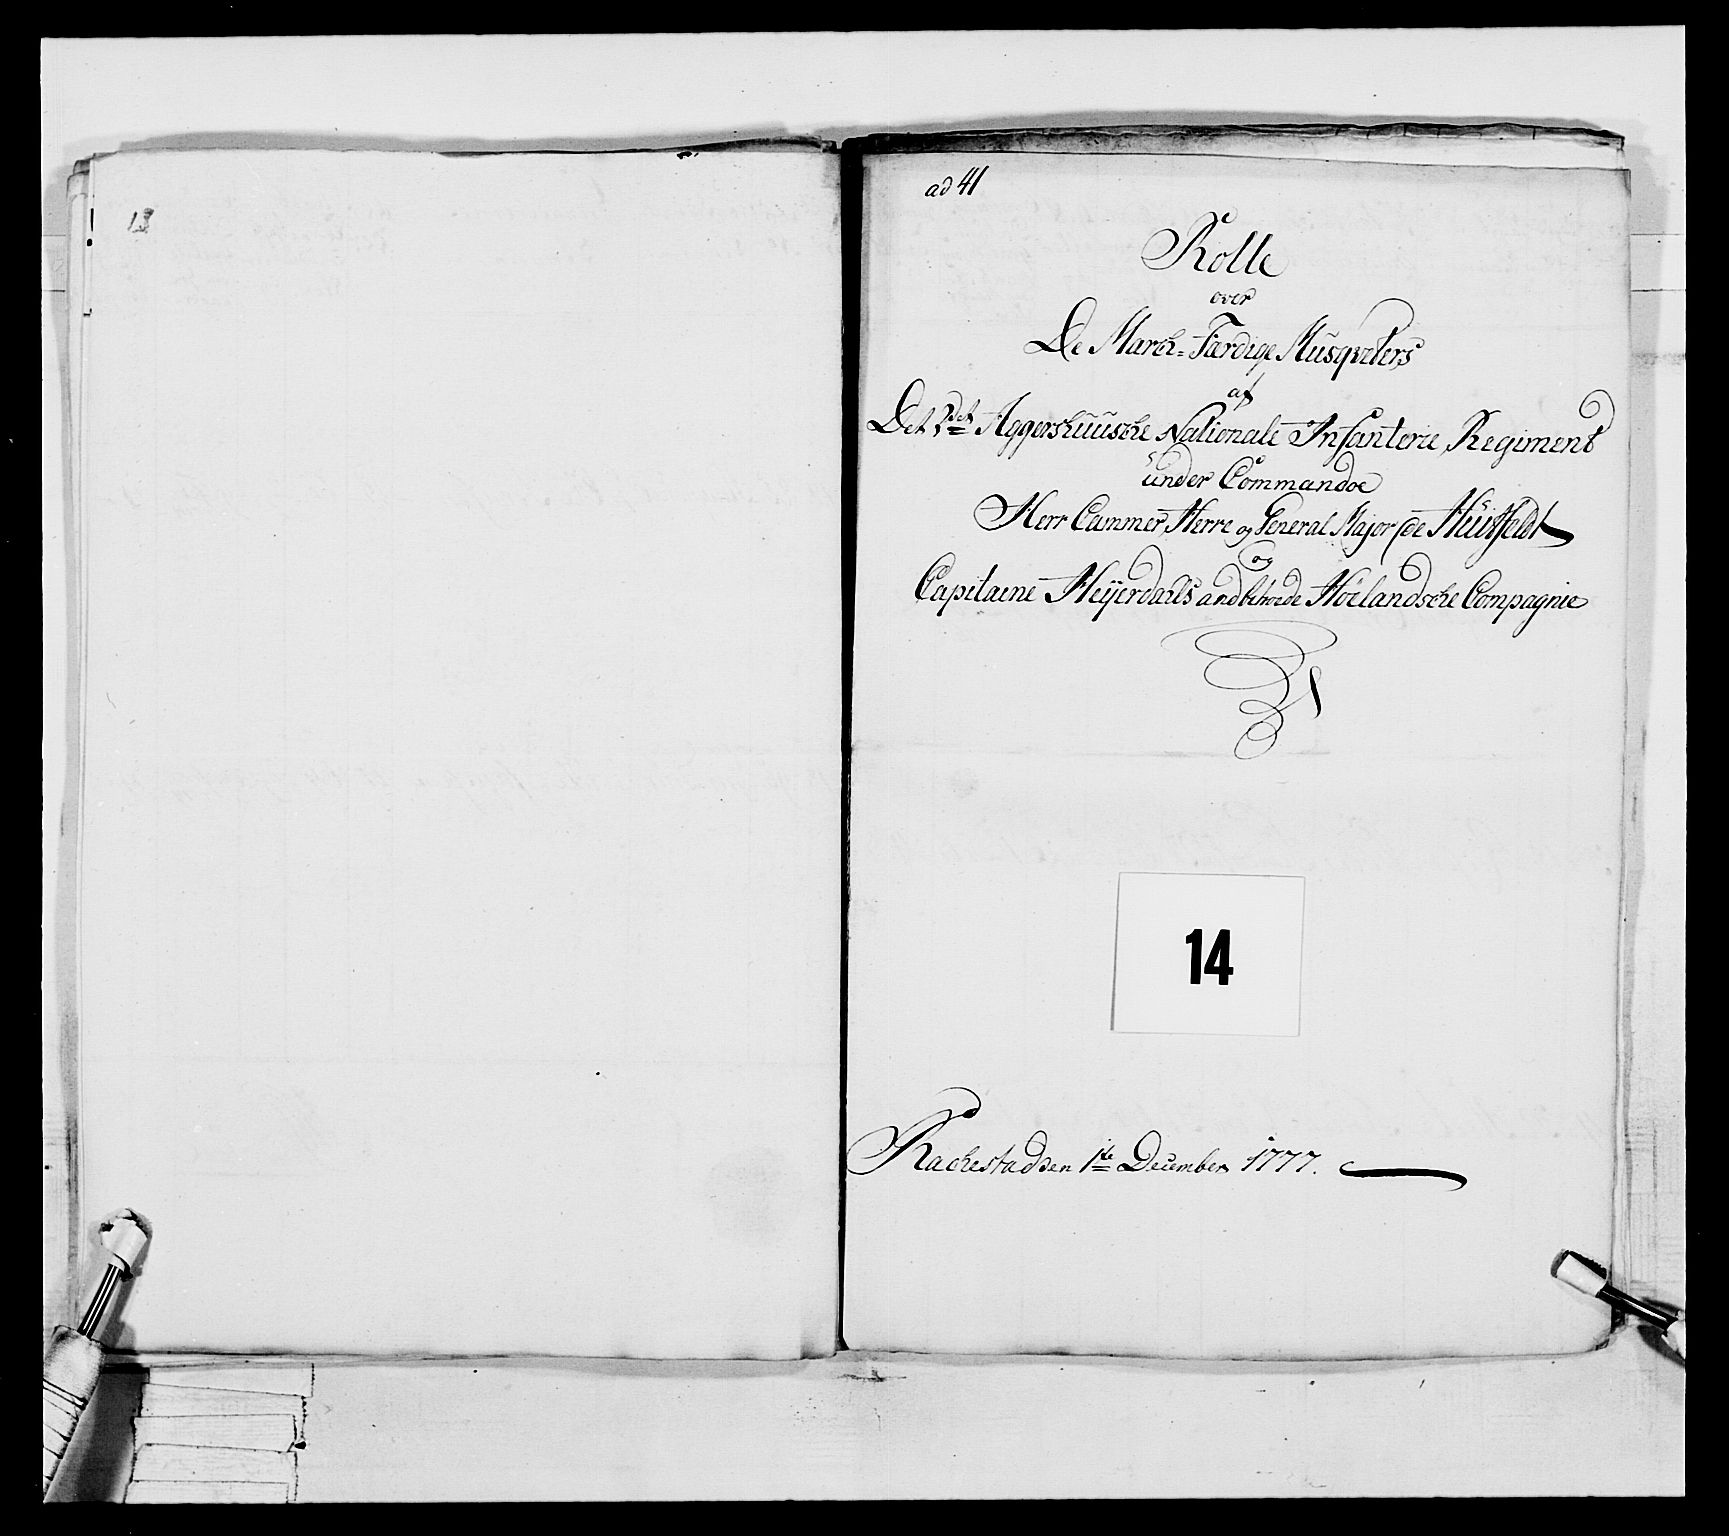 13
ad 41
Rolle
over
De March-Færdige Musqveters
af
Det 2det Aggershuusche Nationale Infanterie Regiment
under Commandoe
Herr Cammer Herre og General Major de Hüitfeldt
og
Capitaine Heÿerdahls andbetroede Hölandsche Compagnie
14
Rackestad den 1te December 1777.